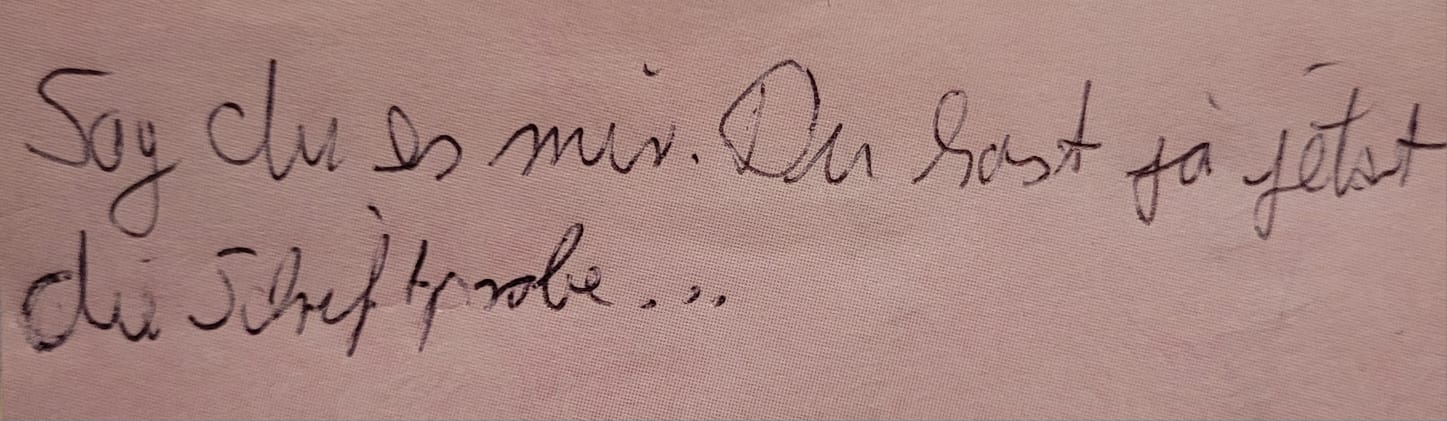 Sag du es mir. Du hast ja jetzt
die Schriftprobe...